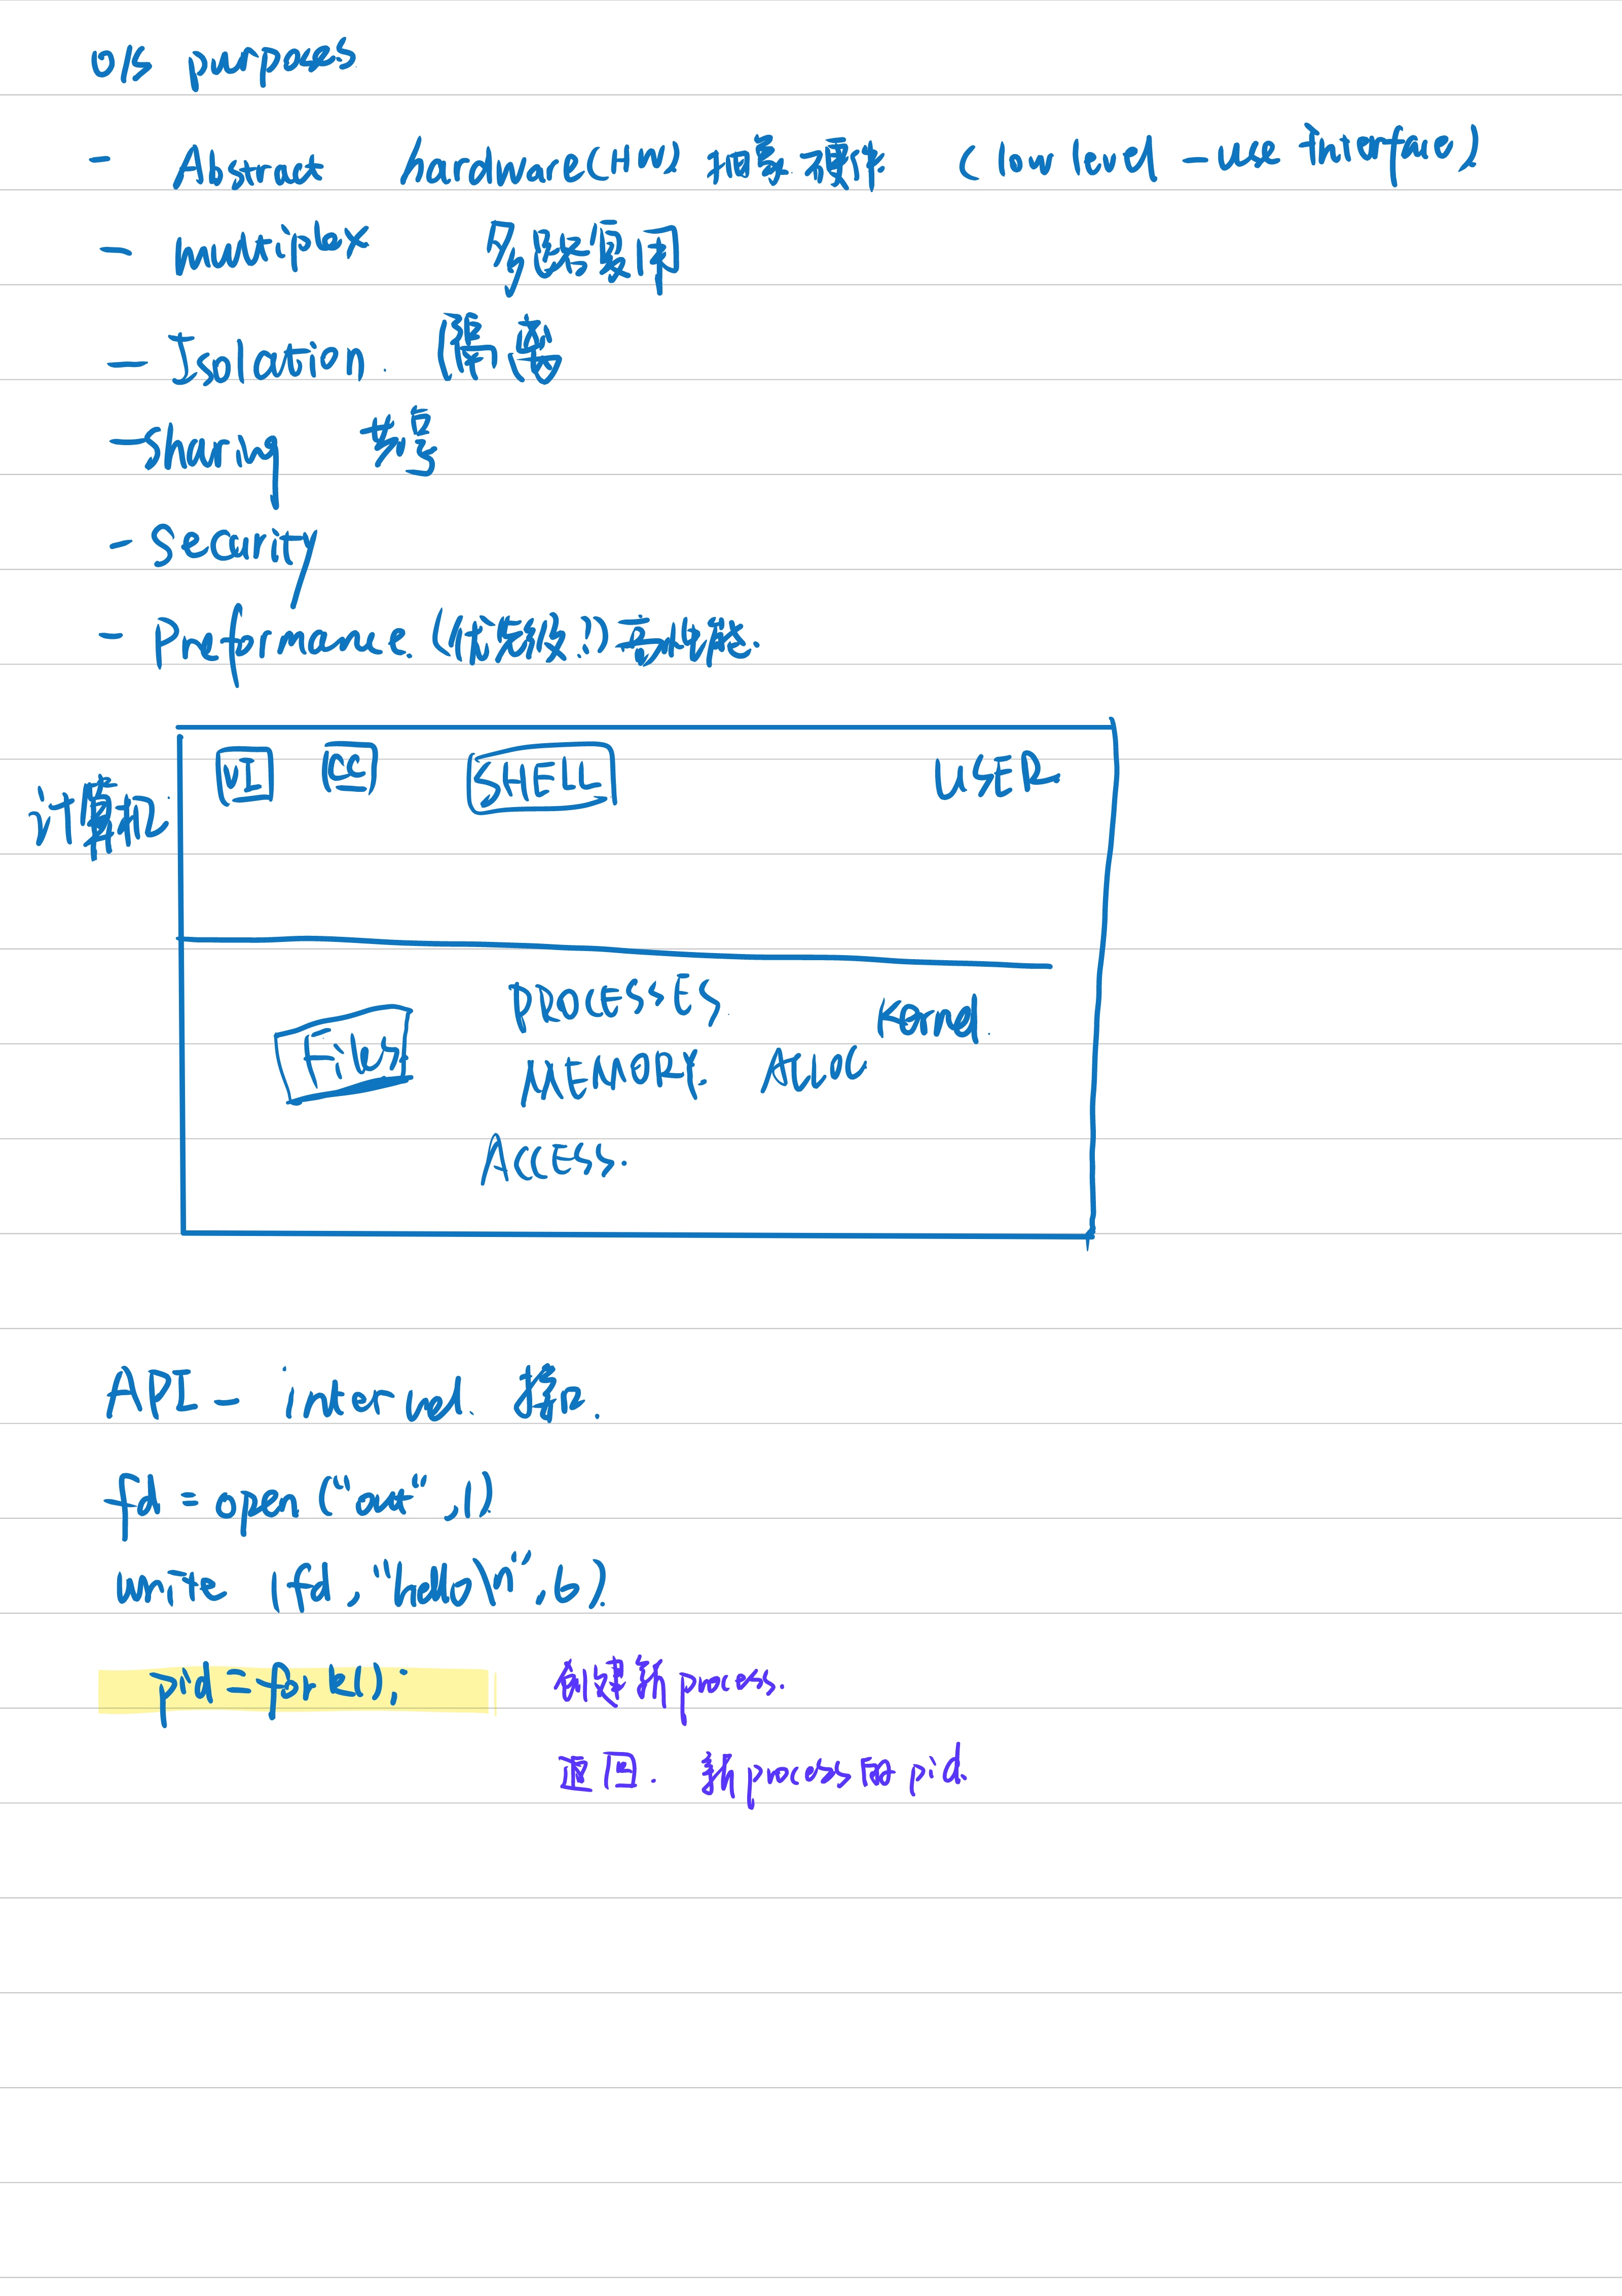 O/S purposes
- Abstract hardware(HW) 抽象硬件 (low level - use Interface)
- multiplex 多路复用
- Isolation. 隔离
- sharing 共享
- Security
- Preformance. (优先级!) 高性能.
VI CC SHELL USER
计算机
PROCESSES
Kernel.
Files MEMORY. ALLOC
ACCESS.
API - 接口.
fd = open ("out", 1)
write (fd, "hello\n", 6)
pid = fork(); 创建新process.
返回. 新process的pid.